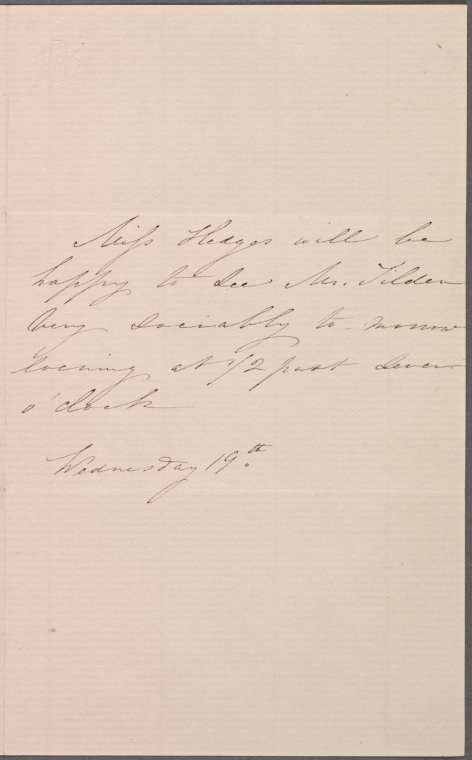 Miss Hedges will be
happy to see Mr. Tilden
very sociably to-morrow
evening at 1/2 past seven
o'clock
Wednesday 19th.